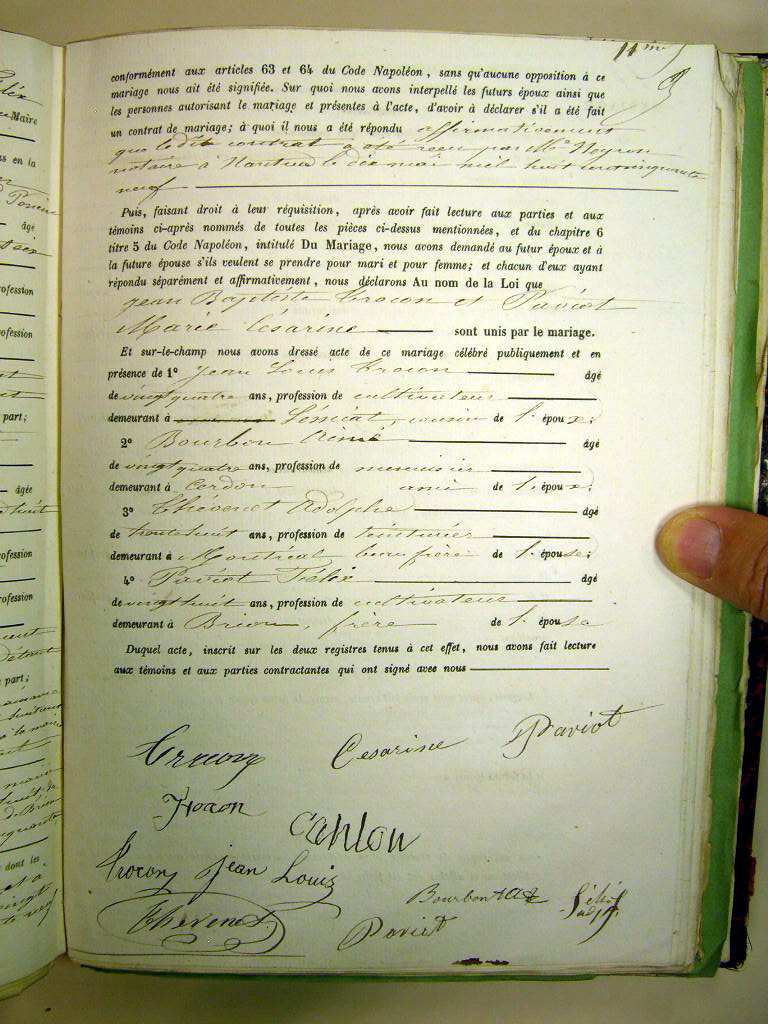 11me
conformément aux articles 63 et 64 du Code Napoléon, sans qu'aucune opposition à ce
mariage nous ait été signifiée. Sur quoi nous avons interpellé les futurs époux ainsi que
les personnes autorisant le mariage et présentes à l'acte, d'avoir à déclarer s'il a été fait
un contrat de mariage; à quoi il nous a été répondu affirmativement
que le dit contrat a été reçu par Me Neyron
notaire à Nantua le dix mai mil huit cent cinquante
neuf
Puis, faisant droit à leur réquisition, après avoir fait lecture aux parties et aux
témoins ci-après nommés de toutes les pièces ci-dessus mentionnées, et du chapitre 6
titre 5 du Code Napoléon, intitulé Du Mariage, nous avons demandé au futur époux et à
la future épouse s'ils veulent se prendre pour mari et pour femme; et chacun d'eux ayant
répondu séparément et affirmativement, nous déclarons Au nom de la Loi que
Jean Baptiste Crocon et Paviot
Marie Césarine sont unis par le mariage.
Et sur-le-champ nous avons dressé acte de ce mariage célébré publiquement et en
présence de 1º Jean Louis Crocon âgé
de vingt quatre ans, profession de cultivateur
demeurant à cousin de l'époux;
2º Bourbon Aimé âgé
de vingt quatre ans, profession de menuisier
demeurant à Cerdon ami de l'époux;
3º Thévenet Adolphe âgé
de trente huit ans, profession de teinturier
demeurant à Montréal beau frère de l'épouse;
4º Paviot Félix âgé
de vingt huit ans, profession de cultivateur
demeurant à Brion, frère de l'épouse
Duquel acte, inscrit sur les deux registres tenus à cet effet, nous avons fait lecture
aux témoins et aux parties contractantes qui ont signé avec nous
Crocon Cesarine Paviot
Crocon Jean Louis
Bourbon
Thevenet Paviot